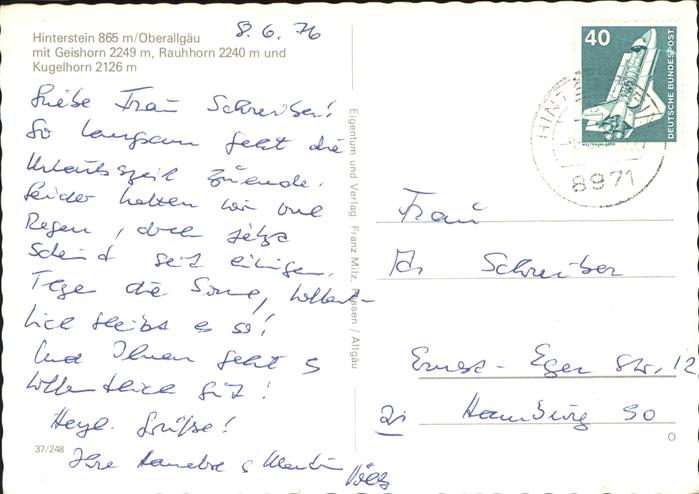 Hinterstein 865 m/Oberallgäu
mit Geishorn 2249 m, Rauhhorn 2240 m und
Kugelhorn 2126 m
8.6.76
Liebe Frau Schreiber!
So langsam geht die
Urlaubszeit zuende.
Leider hatten wir viel
Regen, doch jetzt
scheint seit einigen
Tage die Sonne, hoffent-
lich bleibt es so!
Und Ihnen geht es
hoffentlich gut!
Herzl. Grüße!
Ihre & Martin
37/248
Eigentum und Verlag: Franz Milz, Füssen / Allgäu
40
DEUTSCHE BUNDESPOST
WELTRAUMLABOR
HINT
8971
Frau
Schreiber
Ernst-Eger Str. 12
Hamburg 90